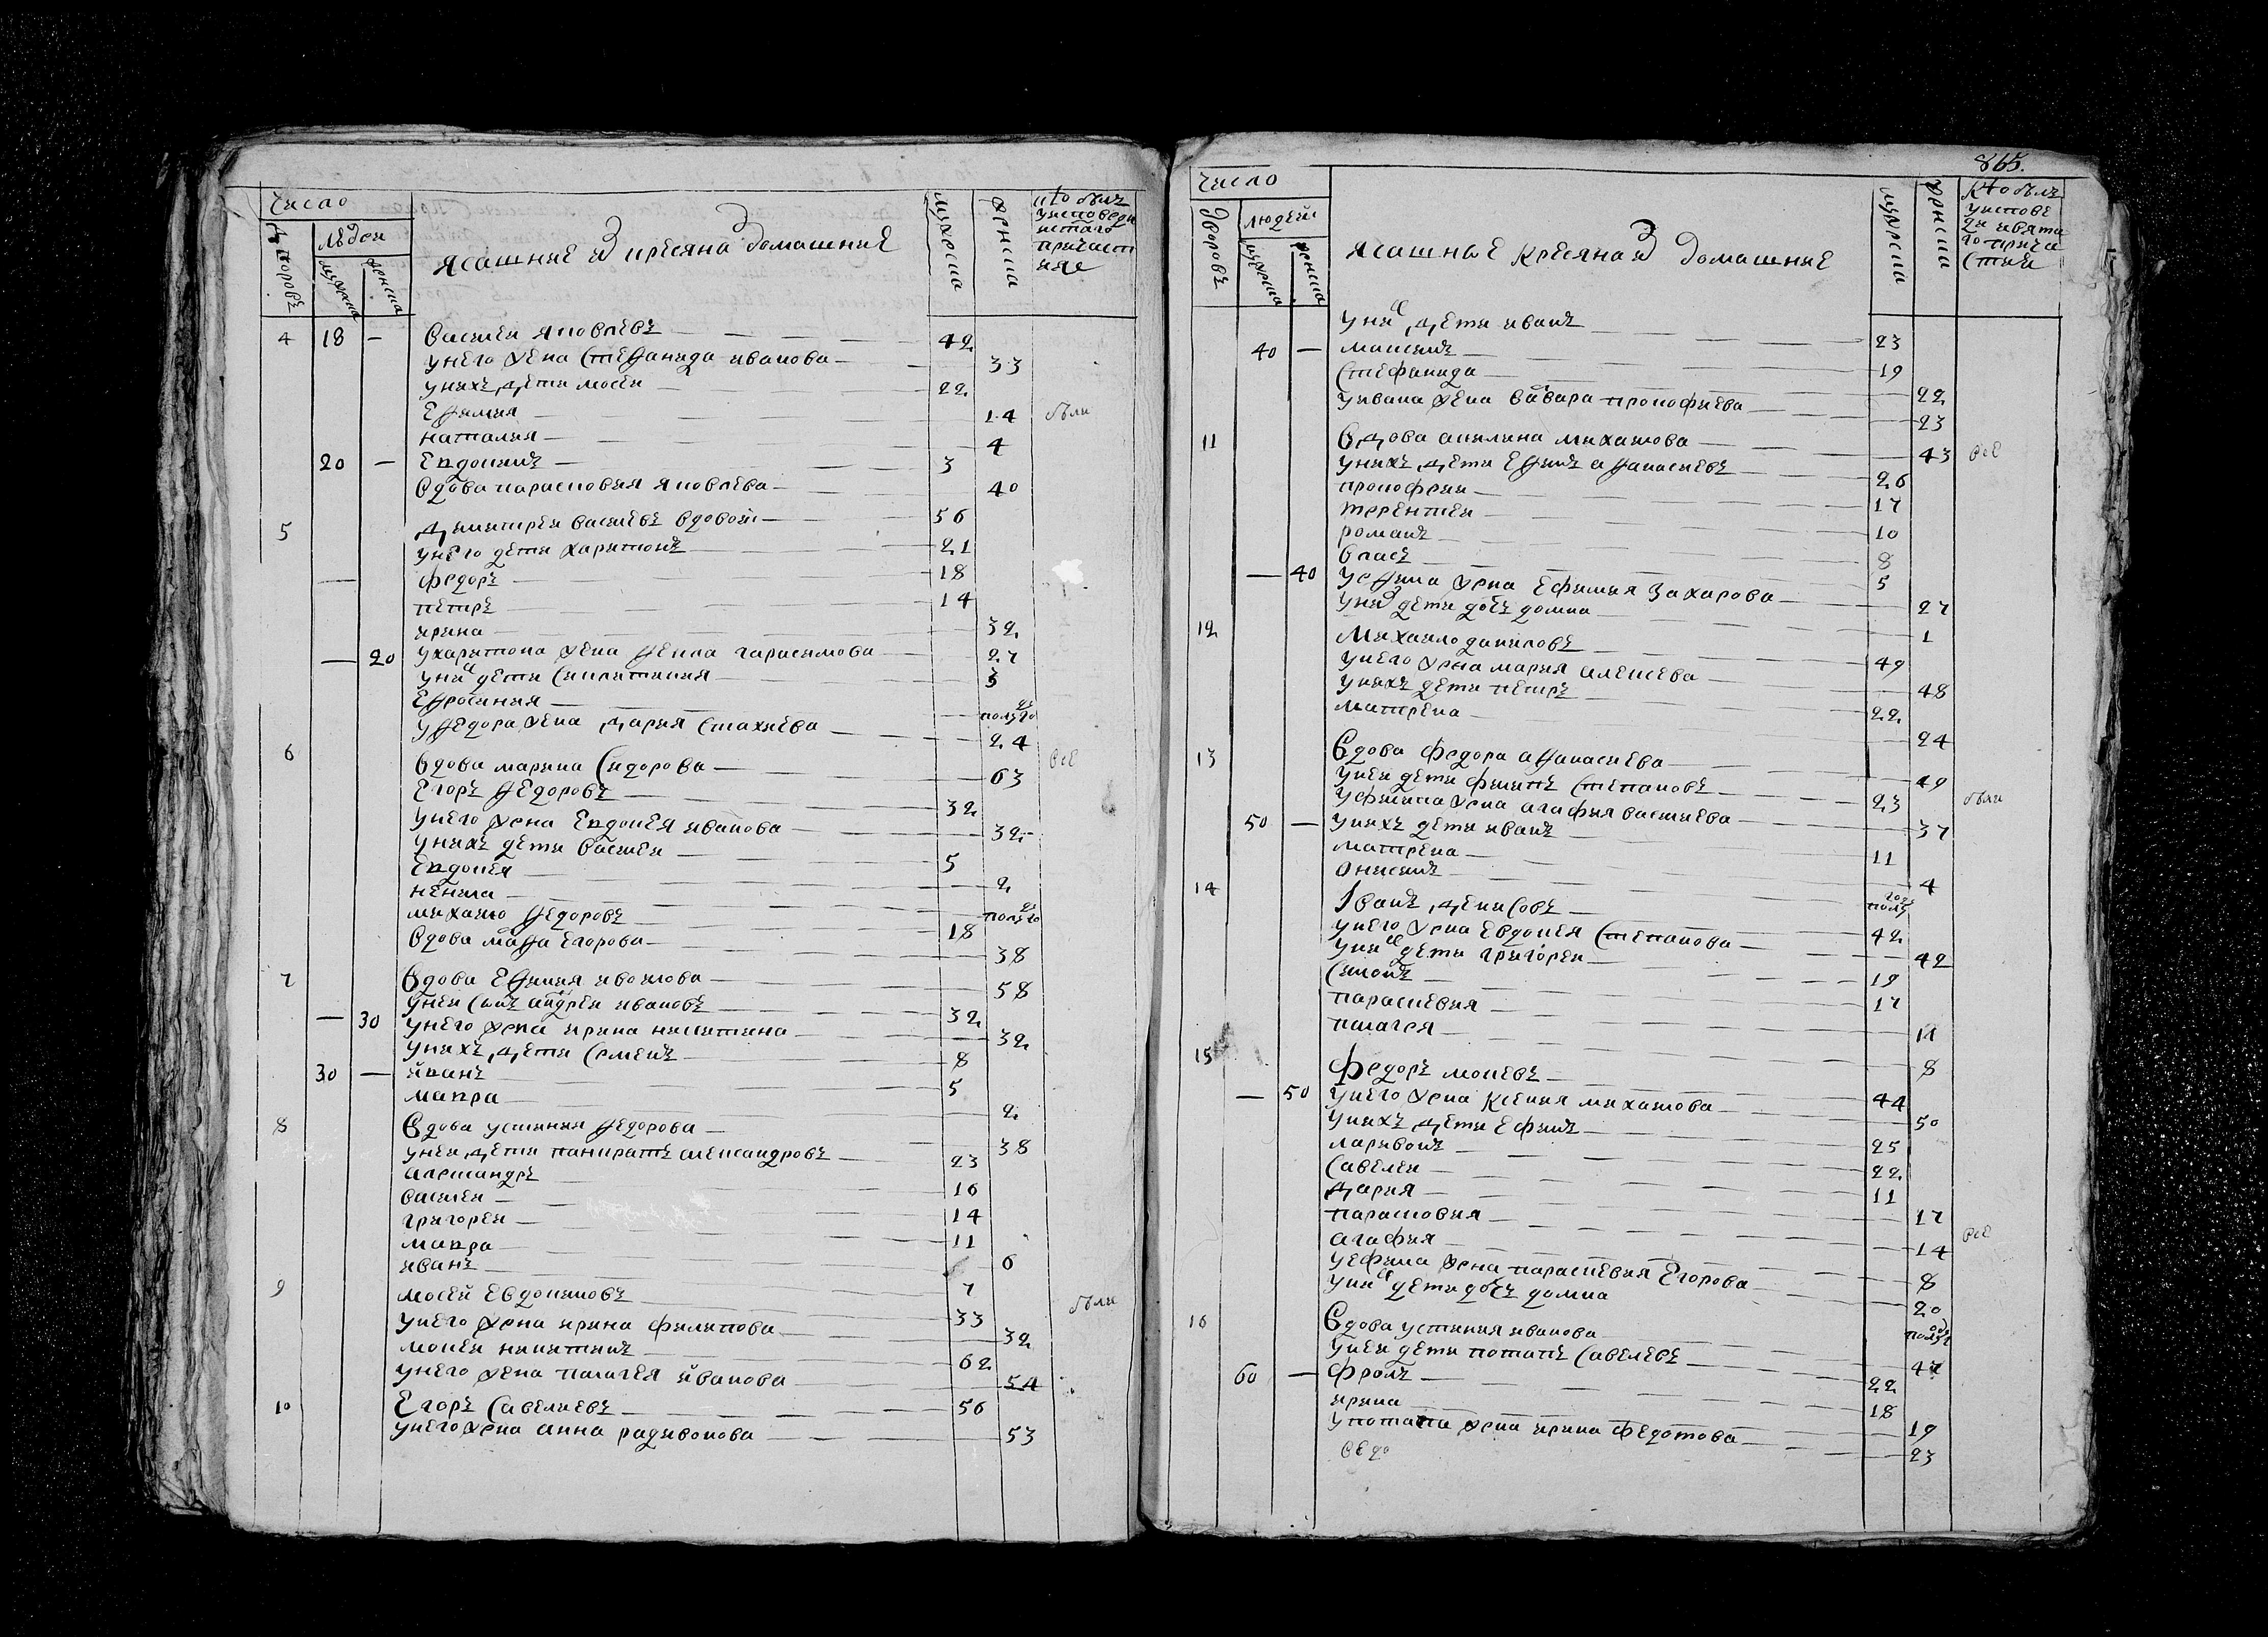 число
дворовъ
людеи
мужеска
женска
ясашние и кресяна домашние
мужеска
женска
кто былъ
уисповеди
истаго
причаст
ияе
4 18 — Василеи яковлевъ 42
унего жена Стефанида иванова 33
унихъ дети мосеи 22
Ефимия 14 были
наталия 4
20 — Евдокимъ 3
вдова парасковия яковлева 40
5 димитреи василевъ вдовои 56
унего дети харитонъ 21
федоръ 18
петръ 14
ирина 32
— 20 ухаритона жена фекла гарасимова 27
уних дети Сиклитикия 3
Ефросиния полуго
уфедора жена дария Стахиева 24
6 вдова марина Сидорова 63 всѣ
Егоръ федоровъ 32
унего жена Евдокея иванова 32
унихъ дети василеи 5
Евдокея 2
ненила полуго
михаило федоровъ 18
вдова мафа Егорова 38
7 вдова Ефимия ивоилова 58
унеи Сынъ андреи ивановъ 32
— 30 унего жена ирина никитина 32
унихъ дети Семенъ 8
30 — иванъ 5
мавра 2
8 вдова устиния федорова 38
унеи дети панкратъ александровъ 23
александръ 16
василеи 14
григореи 11
мавра 6
иванъ 7
9 мосей Евдокимовъ 33 были
унего жена ирина филипова 32
мокеи никитинъ 62
унего жена палагея иванова 54
10 Егоръ Савелиевъ 56
унего жена анна радивонова 53
865.
число
дворовъ
людей
мужеска
женска
ясашные кресяная домашние
мужеска
женска
кто былъ
уиспове
ди исвята
го прича
стия
уних дети иванъ 23
40 — максимъ 19
Стефанида 22
уивана жена вавара прокофиева 23
11 вдова акилина михаилова 43 всѣ
унихъ дети Ефимъ афанасиевъ 26
прокофеи 17
терентиеи 10
романъ 8
власъ 5
— 40 уефима жена Ефимия захарова 27
уних дети дочъ домна 1
12 Михаило даниловъ 49
унего жена мария алексеева 48
унихъ дети петръ 22
матрена 24
13 вдова федора афанасиева 49
унеи дети филипъ Степановъ 23 были
уфилипа жена агафия василиева 37
50 — унихъ дети иванъ 11
матрена 4
онисимъ полу году
14 Iванъ денисовъ 42
унего жена Евдокея Степанова 42
уних дети григореи 19
Симонъ 17
параскевия 11
палагея 8
15 федоръ мокеевъ 44
— 50 унего жена ксения михаилова 50
унихъ дети Ефимъ 25
ларивонъ 22
Савелеи 11
дария 17
парасковия 14 всѣ
агафия 8
уефима жена параскевия Егорова 20
уних дети дочъ домна полуго
16 вдова устиния иванова 47
унеи дети потапъ Савелевъ 22
60 — фролъ 18
ирина 19
употапа жена ирина федотова 23